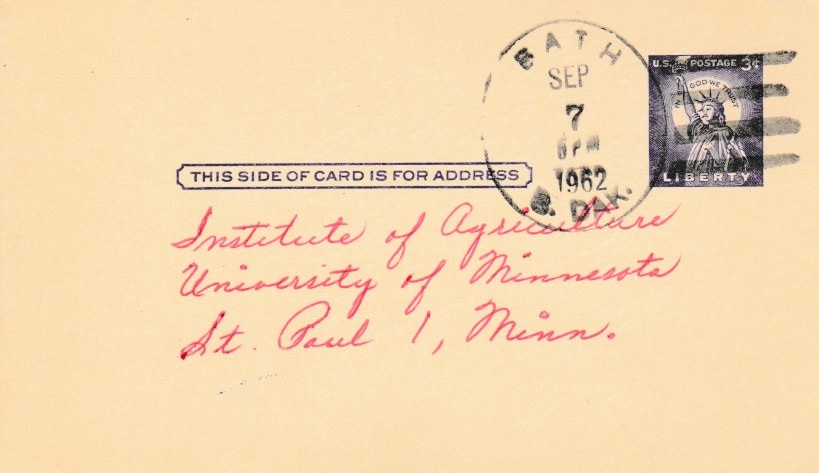 BATH
SEP
7
6 PM
1962
S. DAK.
U.S. POSTAGE 3¢
IN GOD WE TRUST
LIBERTY
THIS SIDE OF CARD IS FOR ADDRESS
Institute of Agriculture
University of Minnesota
St. Paul 1, Minn.